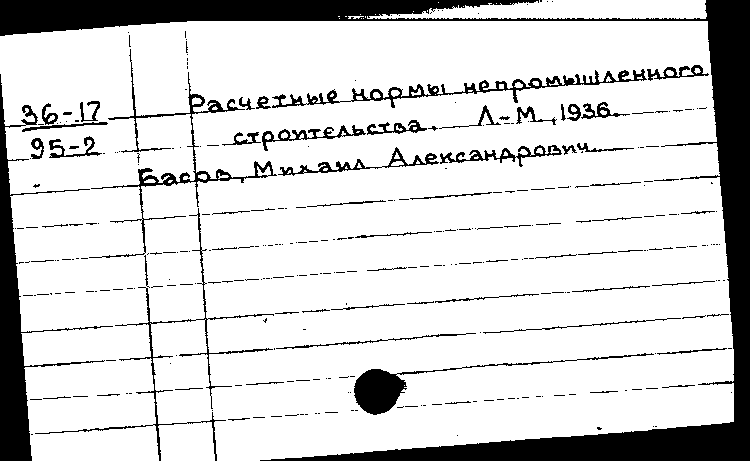 36-17
95-2
Расчетные нормы непромышленного
строительства. Л-М, 1936.
Басов, Михаил Александрович.